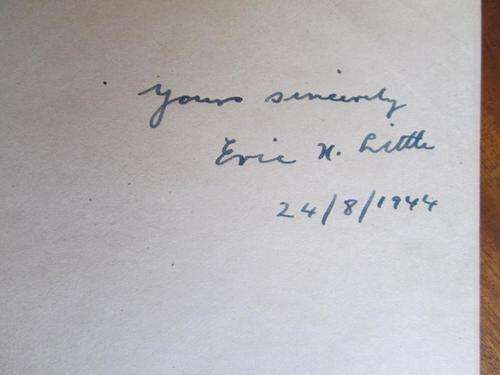 Yours sincerely
Eric N. Little
24/8/1944